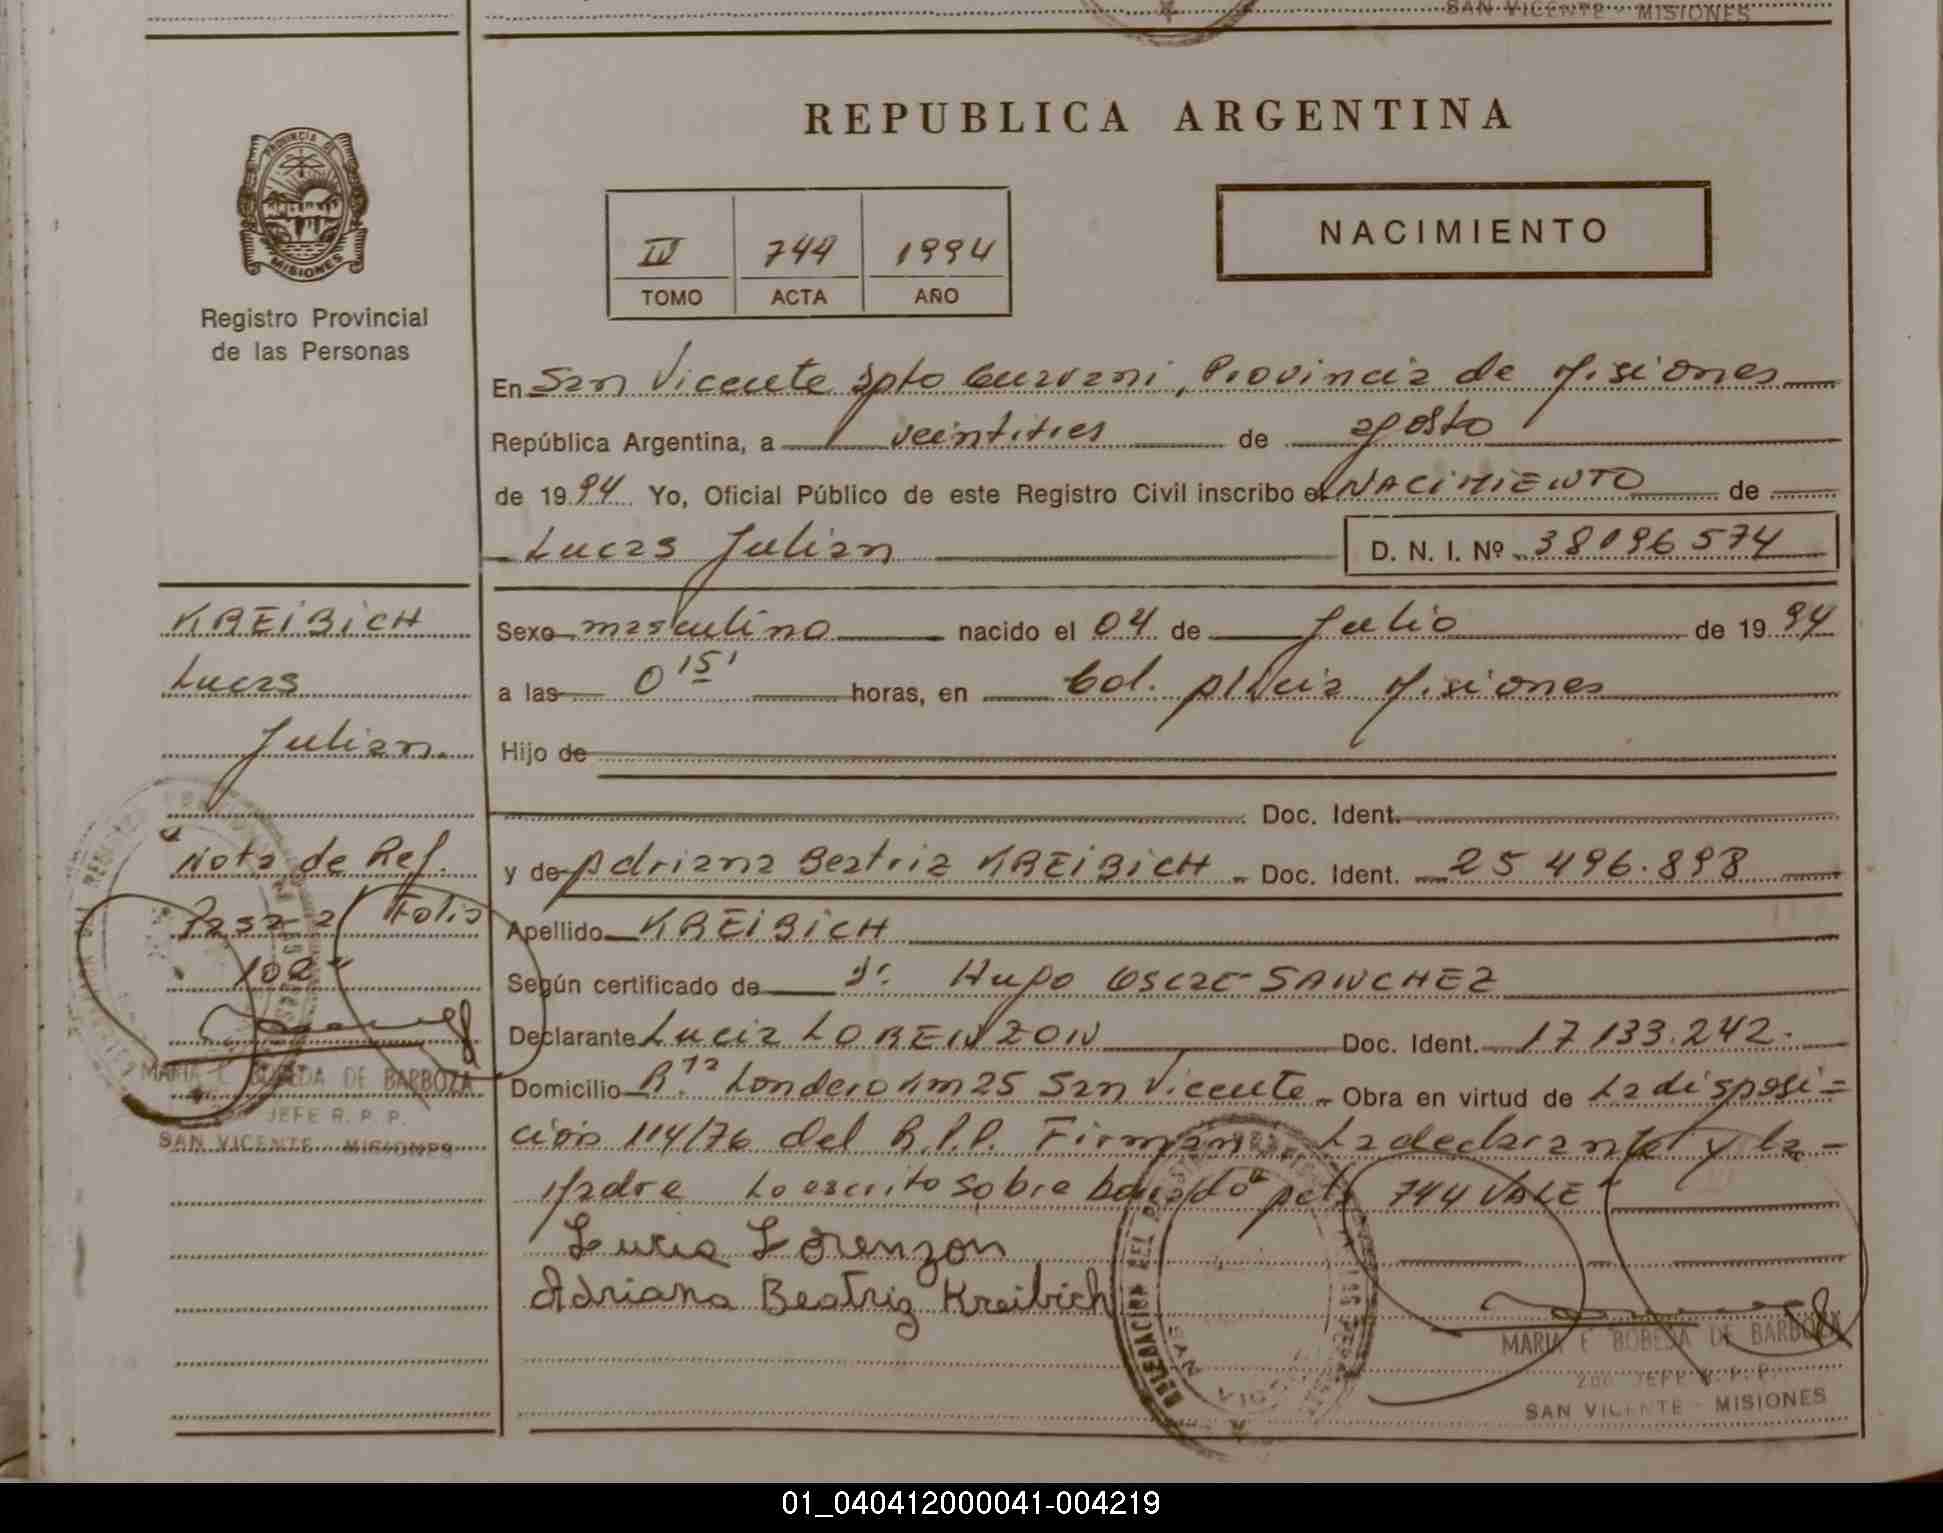 SAN VICENTE - MISIONES
REPUBLICA ARGENTINA
PROVINCIA DE
MISIONES
Registro Provincial
de las Personas
IV 744 1994
TOMO ACTA AÑO
NACIMIENTO
En San Vicente Dpto Guarani, Provincia de Misiones
República Argentina, a veintitres de agosto
de 1994 Yo, Oficial Público de este Registro Civil inscribo el NACIMIENTO de
Lucas Julian D. N. I. Nº 38196574
KREIBICH
Lucas
Julian.
Sexo masculino nacido el 04 de Julio de 1994
a las 0 15' horas, en Col. Misiones
Hijo de
Doc. Ident.
y de Adriana Beatriz KREIBICH - Doc. Ident. 25 496.898
"Nota de Ref.
Pasa a Folio
102"
MARIA E BOBEDA DE BARBOZA
JEFE R. P. P.
SAN VICENTE MISIONES
Apellido KREIBICH
Según certificado de Dr. Hugo Oscar SANCHEZ
Declarante Lucia LORENZON Doc. Ident. 17 133.242.
Domicilio R. 12 Londero Km 25 San Vicente - Obra en virtud de La disposi=
ción 114/76 del R.P.P. Firman La declarante y la -
Madre Lo escrito sobre borrado 744 VALE"
Lucia Lorenzon
Adriana Beatriz Kreibich
MARIA E BOBEDA DE BARBOZA
JEFE R. P. P.
SAN VICENTE - MISIONES
01_040412000041-004219